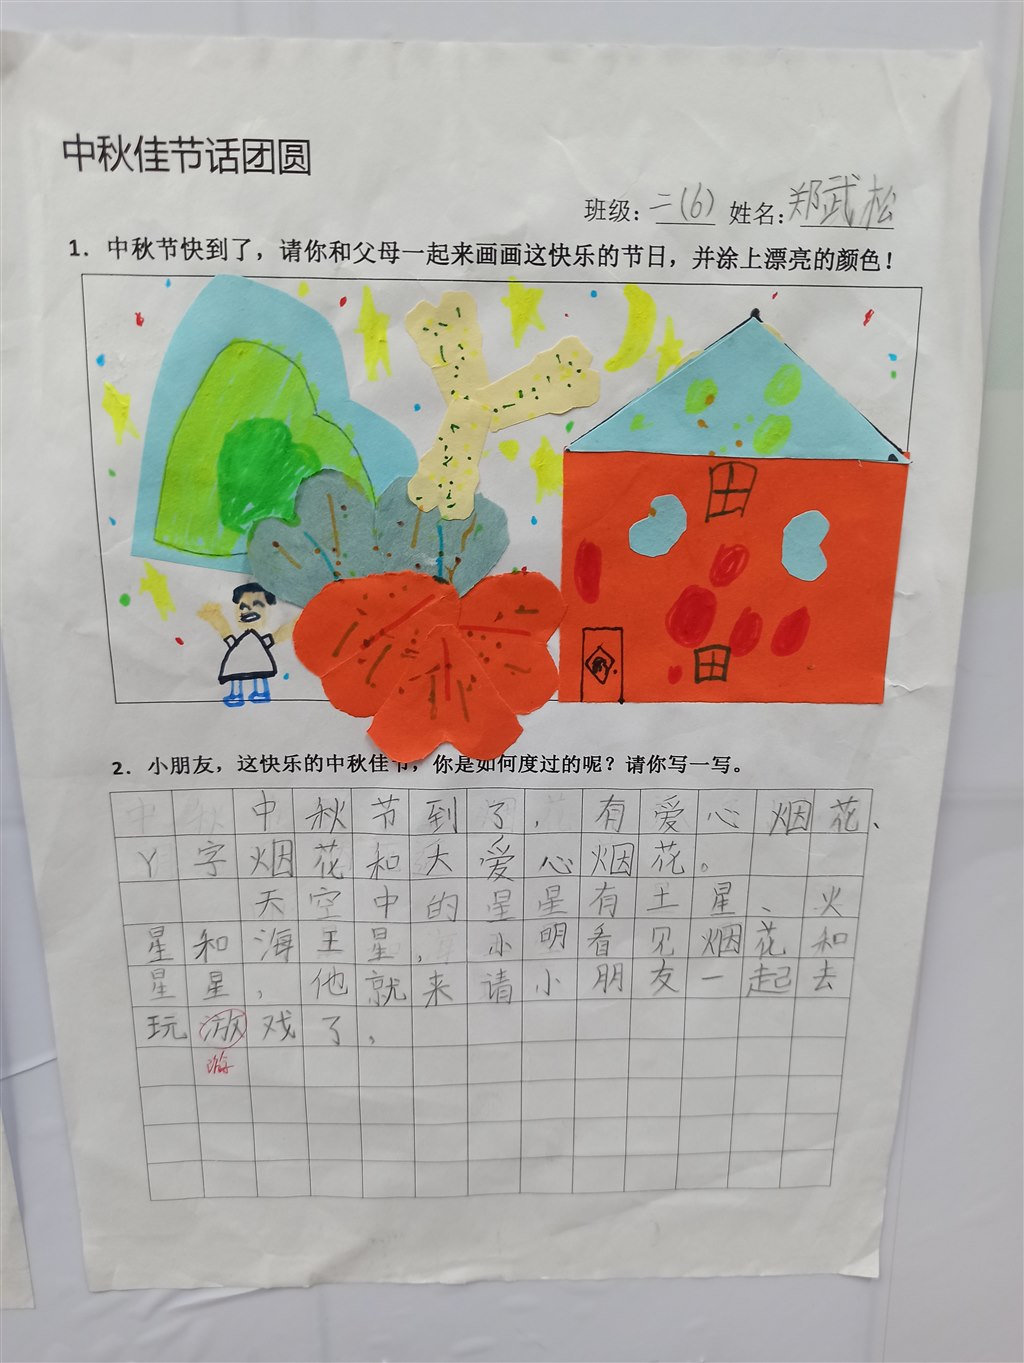 中秋佳节话团圆
班级：二(6) 姓名：郑武松
1. 中秋节快到了，请你和父母一起来画画这快乐的节日，并涂上漂亮的颜色！
2. 小朋友，这快乐的中秋佳节，你是如何度过的呢？请你写一写。
中秋节到了，有爱心烟花、
丫字烟花和大爱心烟花。
天空中的星星有土星、火
星和海王星，小明看见烟花和
星星，他就来请小朋友一起去
玩游戏了，
游